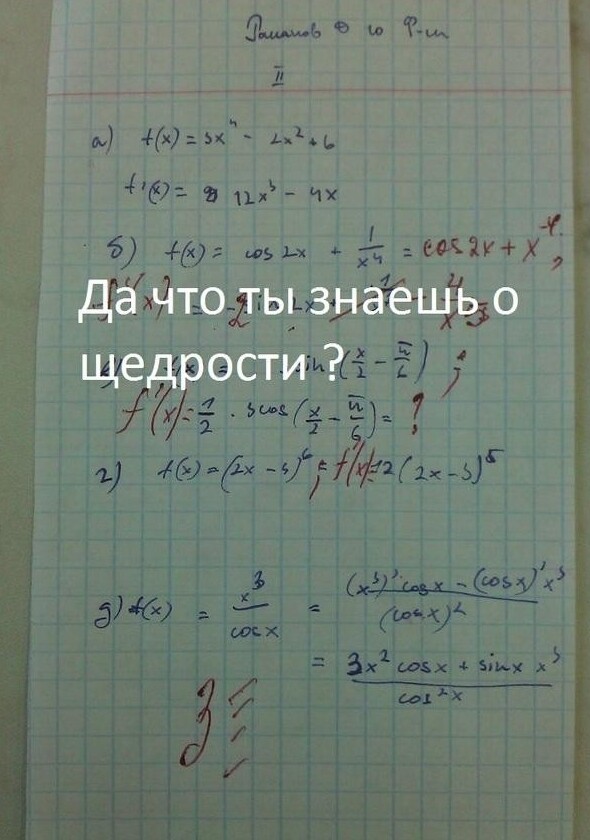 Романов
II
а) f(x) = 3x⁴ - 2x² + 6
f'(x) = 12x³ - 4x
б) f(x) = cos 2x + 1/x⁴ = cos 2x + x⁻⁴;
Да что ты знаешь о
щедрости ?
sin(x/2 - π/6) ;
f'(x) = 1/2 · 3cos(x/2 - π/6) = ?
г) f(x) = (2x - 3)⁶; f'(x) = 12(2x - 3)⁵
д) f(x) = x³/cosx = ((x³)' cosx - (cosx)' x³)/(cosx)²
= (3x² cosx + sinx x³)/cos²x
3